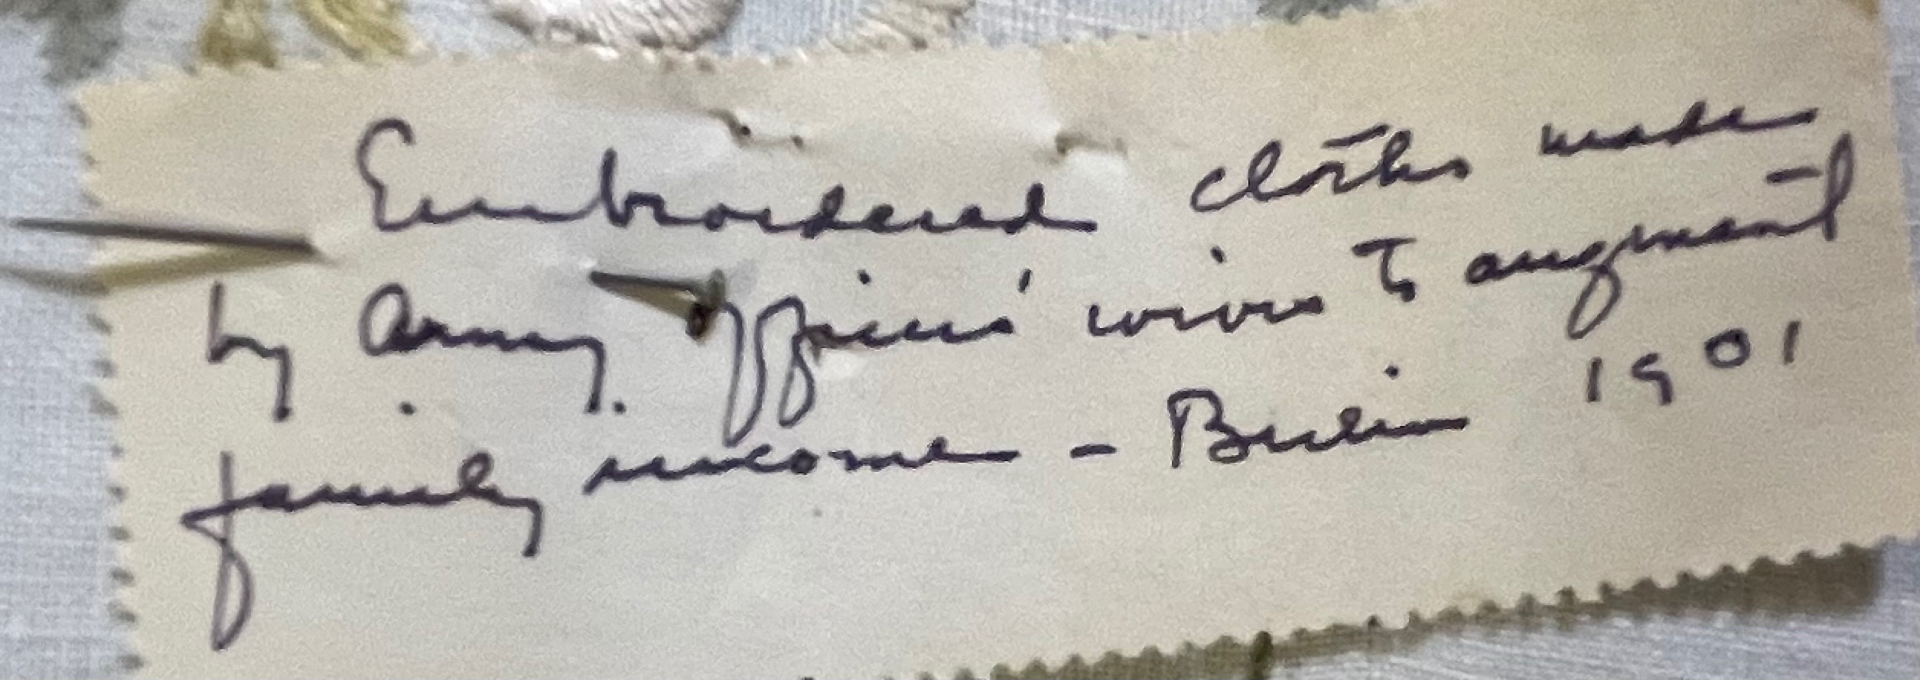 Embroidered cloths made
by Army officers' wives to augment
family income - Berlin 1901